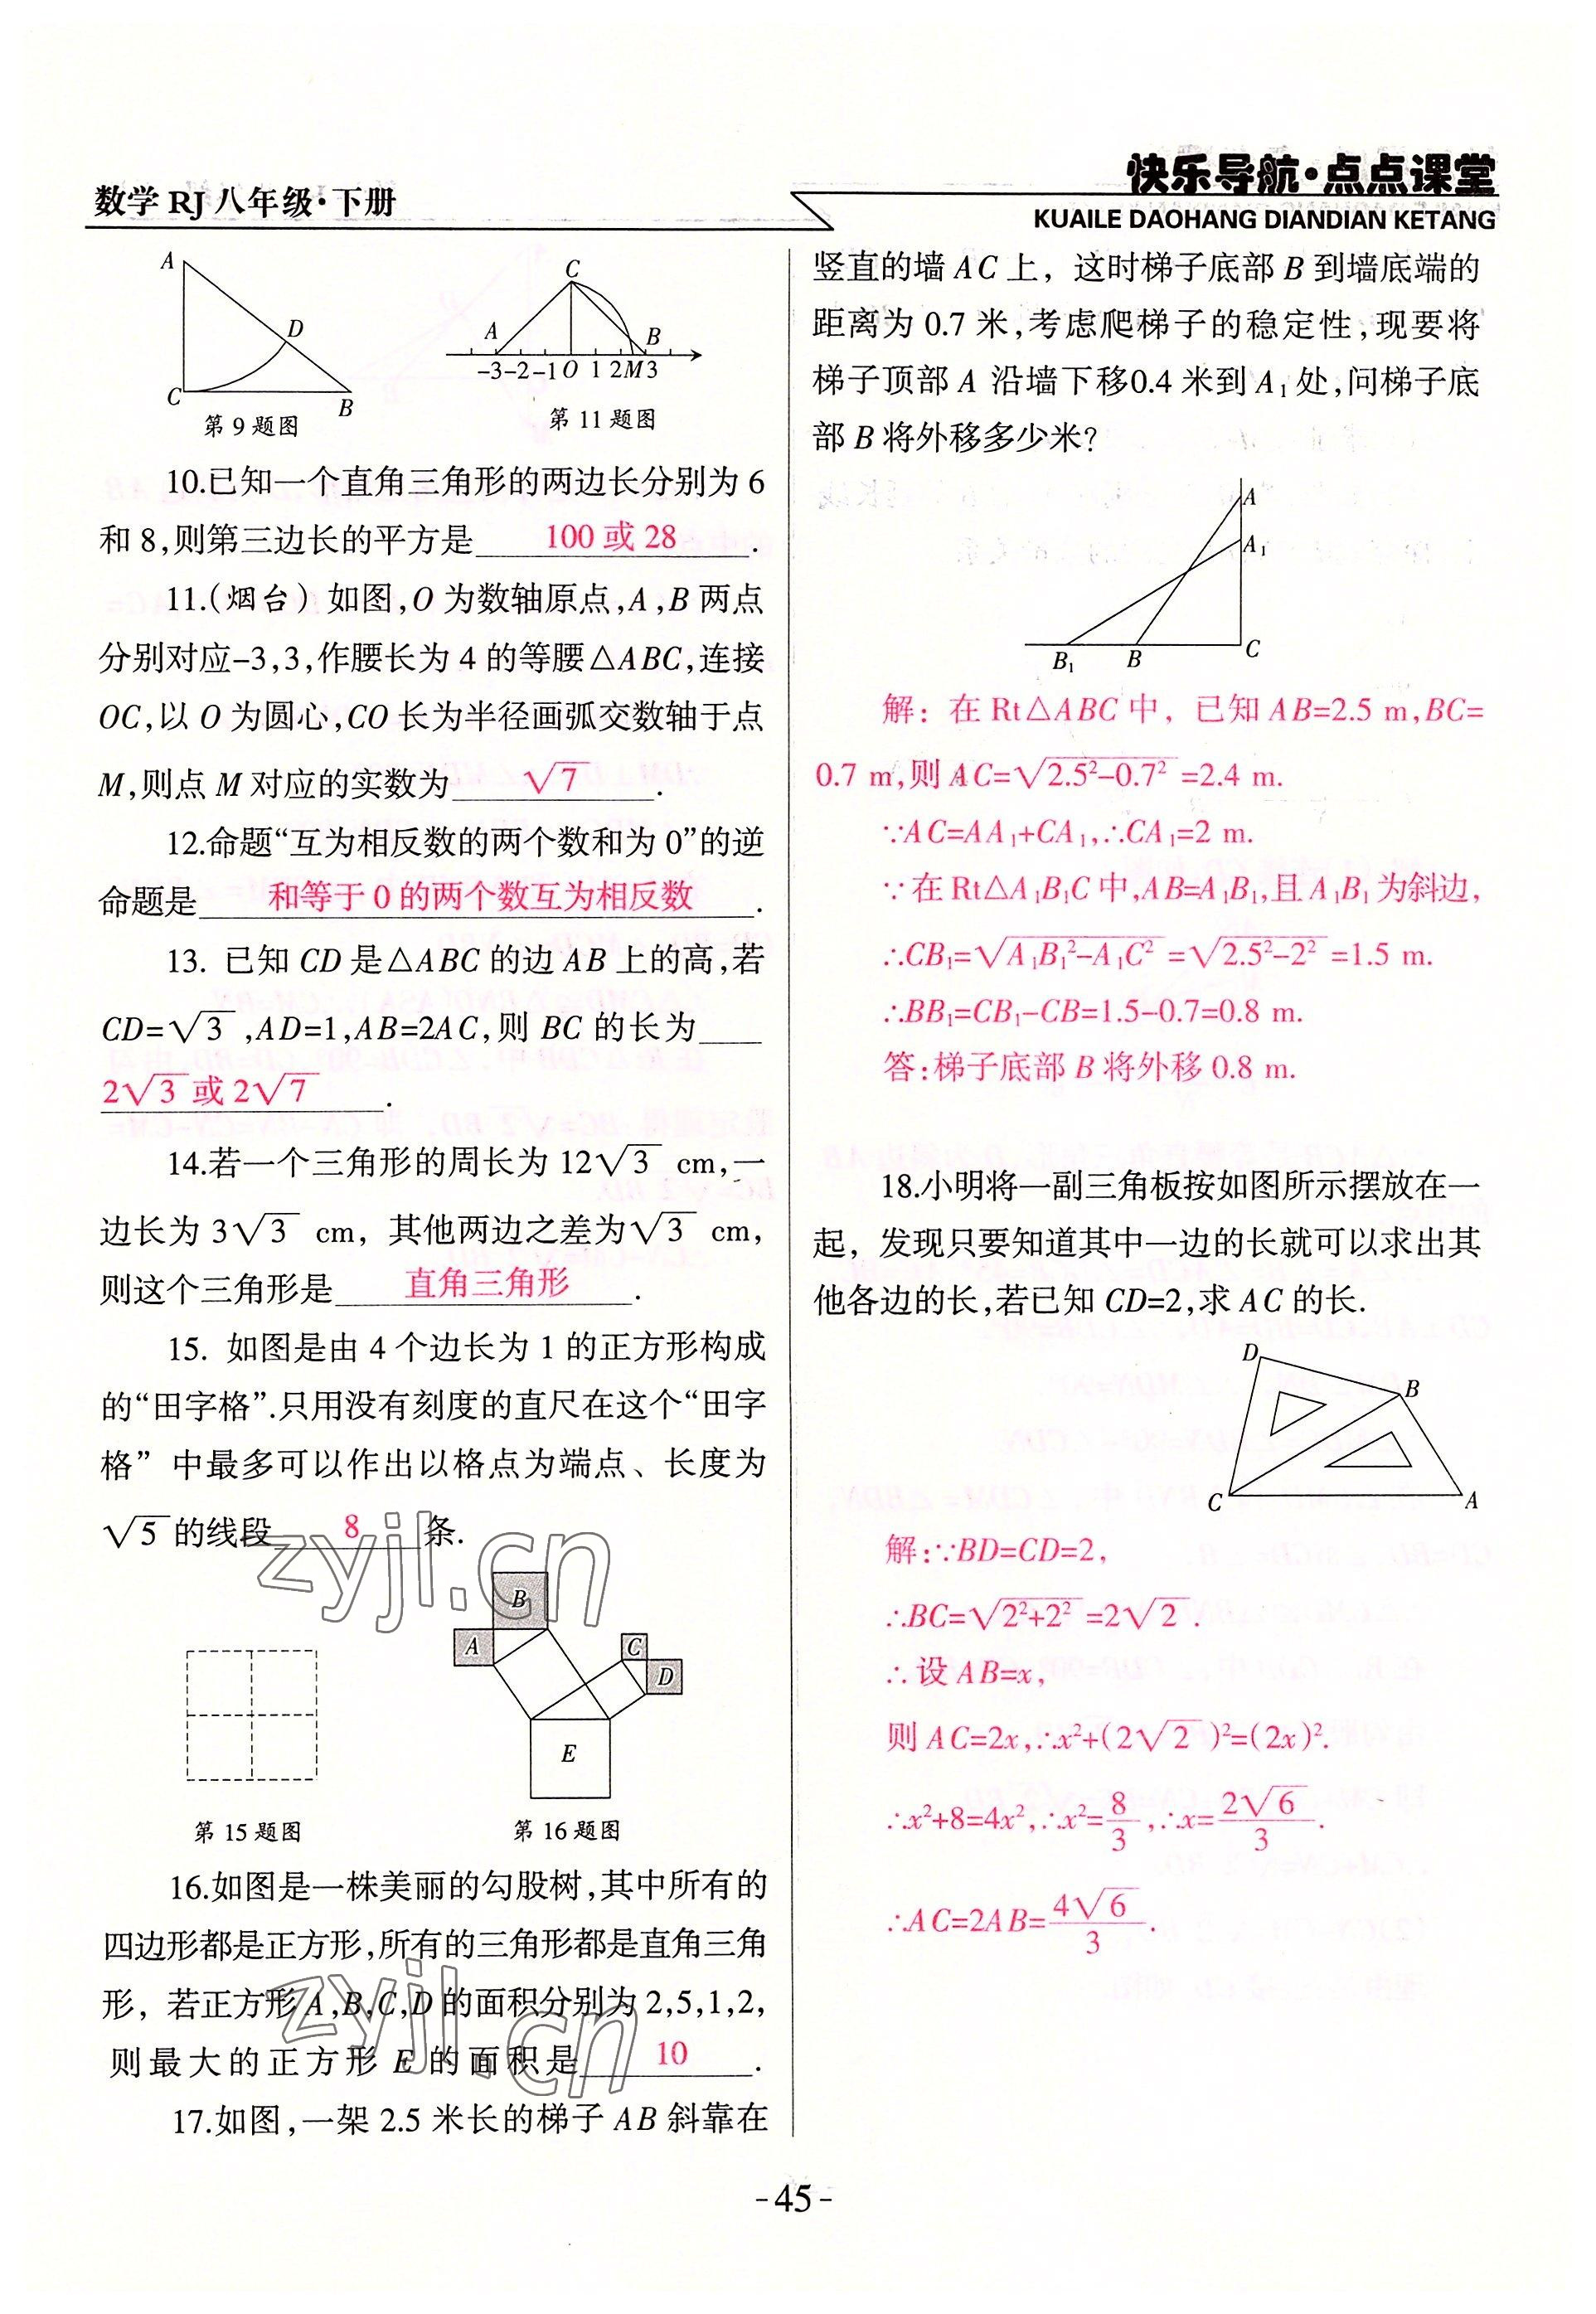 数学 RJ 八年级·下册
快乐导航·点点课堂
KUAILE DAOHANG DIANDIAN KETANG
A
D
C
B
第 9 题图
C
A
B
-3 -2 -1 O 1 2 M 3
第 11 题图
10.已知一个直角三角形的两边长分别为 6
和 8,则第三边长的平方是 100 或 28 .
11.(烟台) 如图,O 为数轴原点,A,B 两点
分别对应-3,3,作腰长为 4 的等腰△ABC,连接
OC,以 O 为圆心,CO 长为半径画弧交数轴于点
M,则点 M 对应的实数为 √7 .
12.命题“互为相反数的两个数和为 0”的逆
命题是 和等于 0 的两个数互为相反数 .
13. 已知 CD 是△ABC 的边 AB 上的高,若
CD=√3,AD=1,AB=2AC,则 BC 的长为
2√3 或 2√7 .
14.若一个三角形的周长为 12√3 cm,一
边长为 3√3 cm, 其他两边之差为√3 cm,
则这个三角形是 直角三角形 .
15. 如图是由 4 个边长为 1 的正方形构成
的“田字格”.只用没有刻度的直尺在这个“田字
格” 中最多可以作出以格点为端点、长度为
√5 的线段 8 条.
B
A
C
D
E
第 15 题图
第 16 题图
16.如图是一株美丽的勾股树,其中所有的
四边形都是正方形,所有的三角形都是直角三角
形, 若正方形 A,B,C,D 的面积分别为 2,5,1,2,
则最大的正方形 E 的面积是 10 .
17.如图,一架 2.5 米长的梯子 AB 斜靠在
竖直的墙 AC 上, 这时梯子底部 B 到墙底端的
距离为 0.7 米,考虑爬梯子的稳定性,现要将
梯子顶部 A 沿墙下移0.4 米到 A₁ 处,问梯子底
部 B 将外移多少米?
A
A₁
B₁
B
C
解: 在 Rt△ABC 中, 已知 AB=2.5 m,BC=
0.7 m,则 AC=√(2.5²-0.7²)=2.4 m.
∵AC=AA₁+CA₁,∴CA₁=2 m.
∵在 Rt△A₁B₁C 中,AB=A₁B₁,且 A₁B₁ 为斜边,
∴CB₁=√(A₁B₁²-A₁C²)=√(2.5²-2²)=1.5 m.
∴BB₁=CB₁-CB=1.5-0.7=0.8 m.
答:梯子底部 B 将外移 0.8 m.
18.小明将一副三角板按如图所示摆放在一
起, 发现只要知道其中一边的长就可以求出其
他各边的长,若已知 CD=2,求 AC 的长.
D
B
C
A
解:∵BD=CD=2,
∴BC=√(2²+2²)=2√2.
∴设 AB=x,
则 AC=2x,∴x²+(2√2)²=(2x)².
∴x²+8=4x²,∴x²=8/3,∴x=2√6/3.
∴AC=2AB=4√6/3.
zyjl.cn
zyjl.cn
-45-